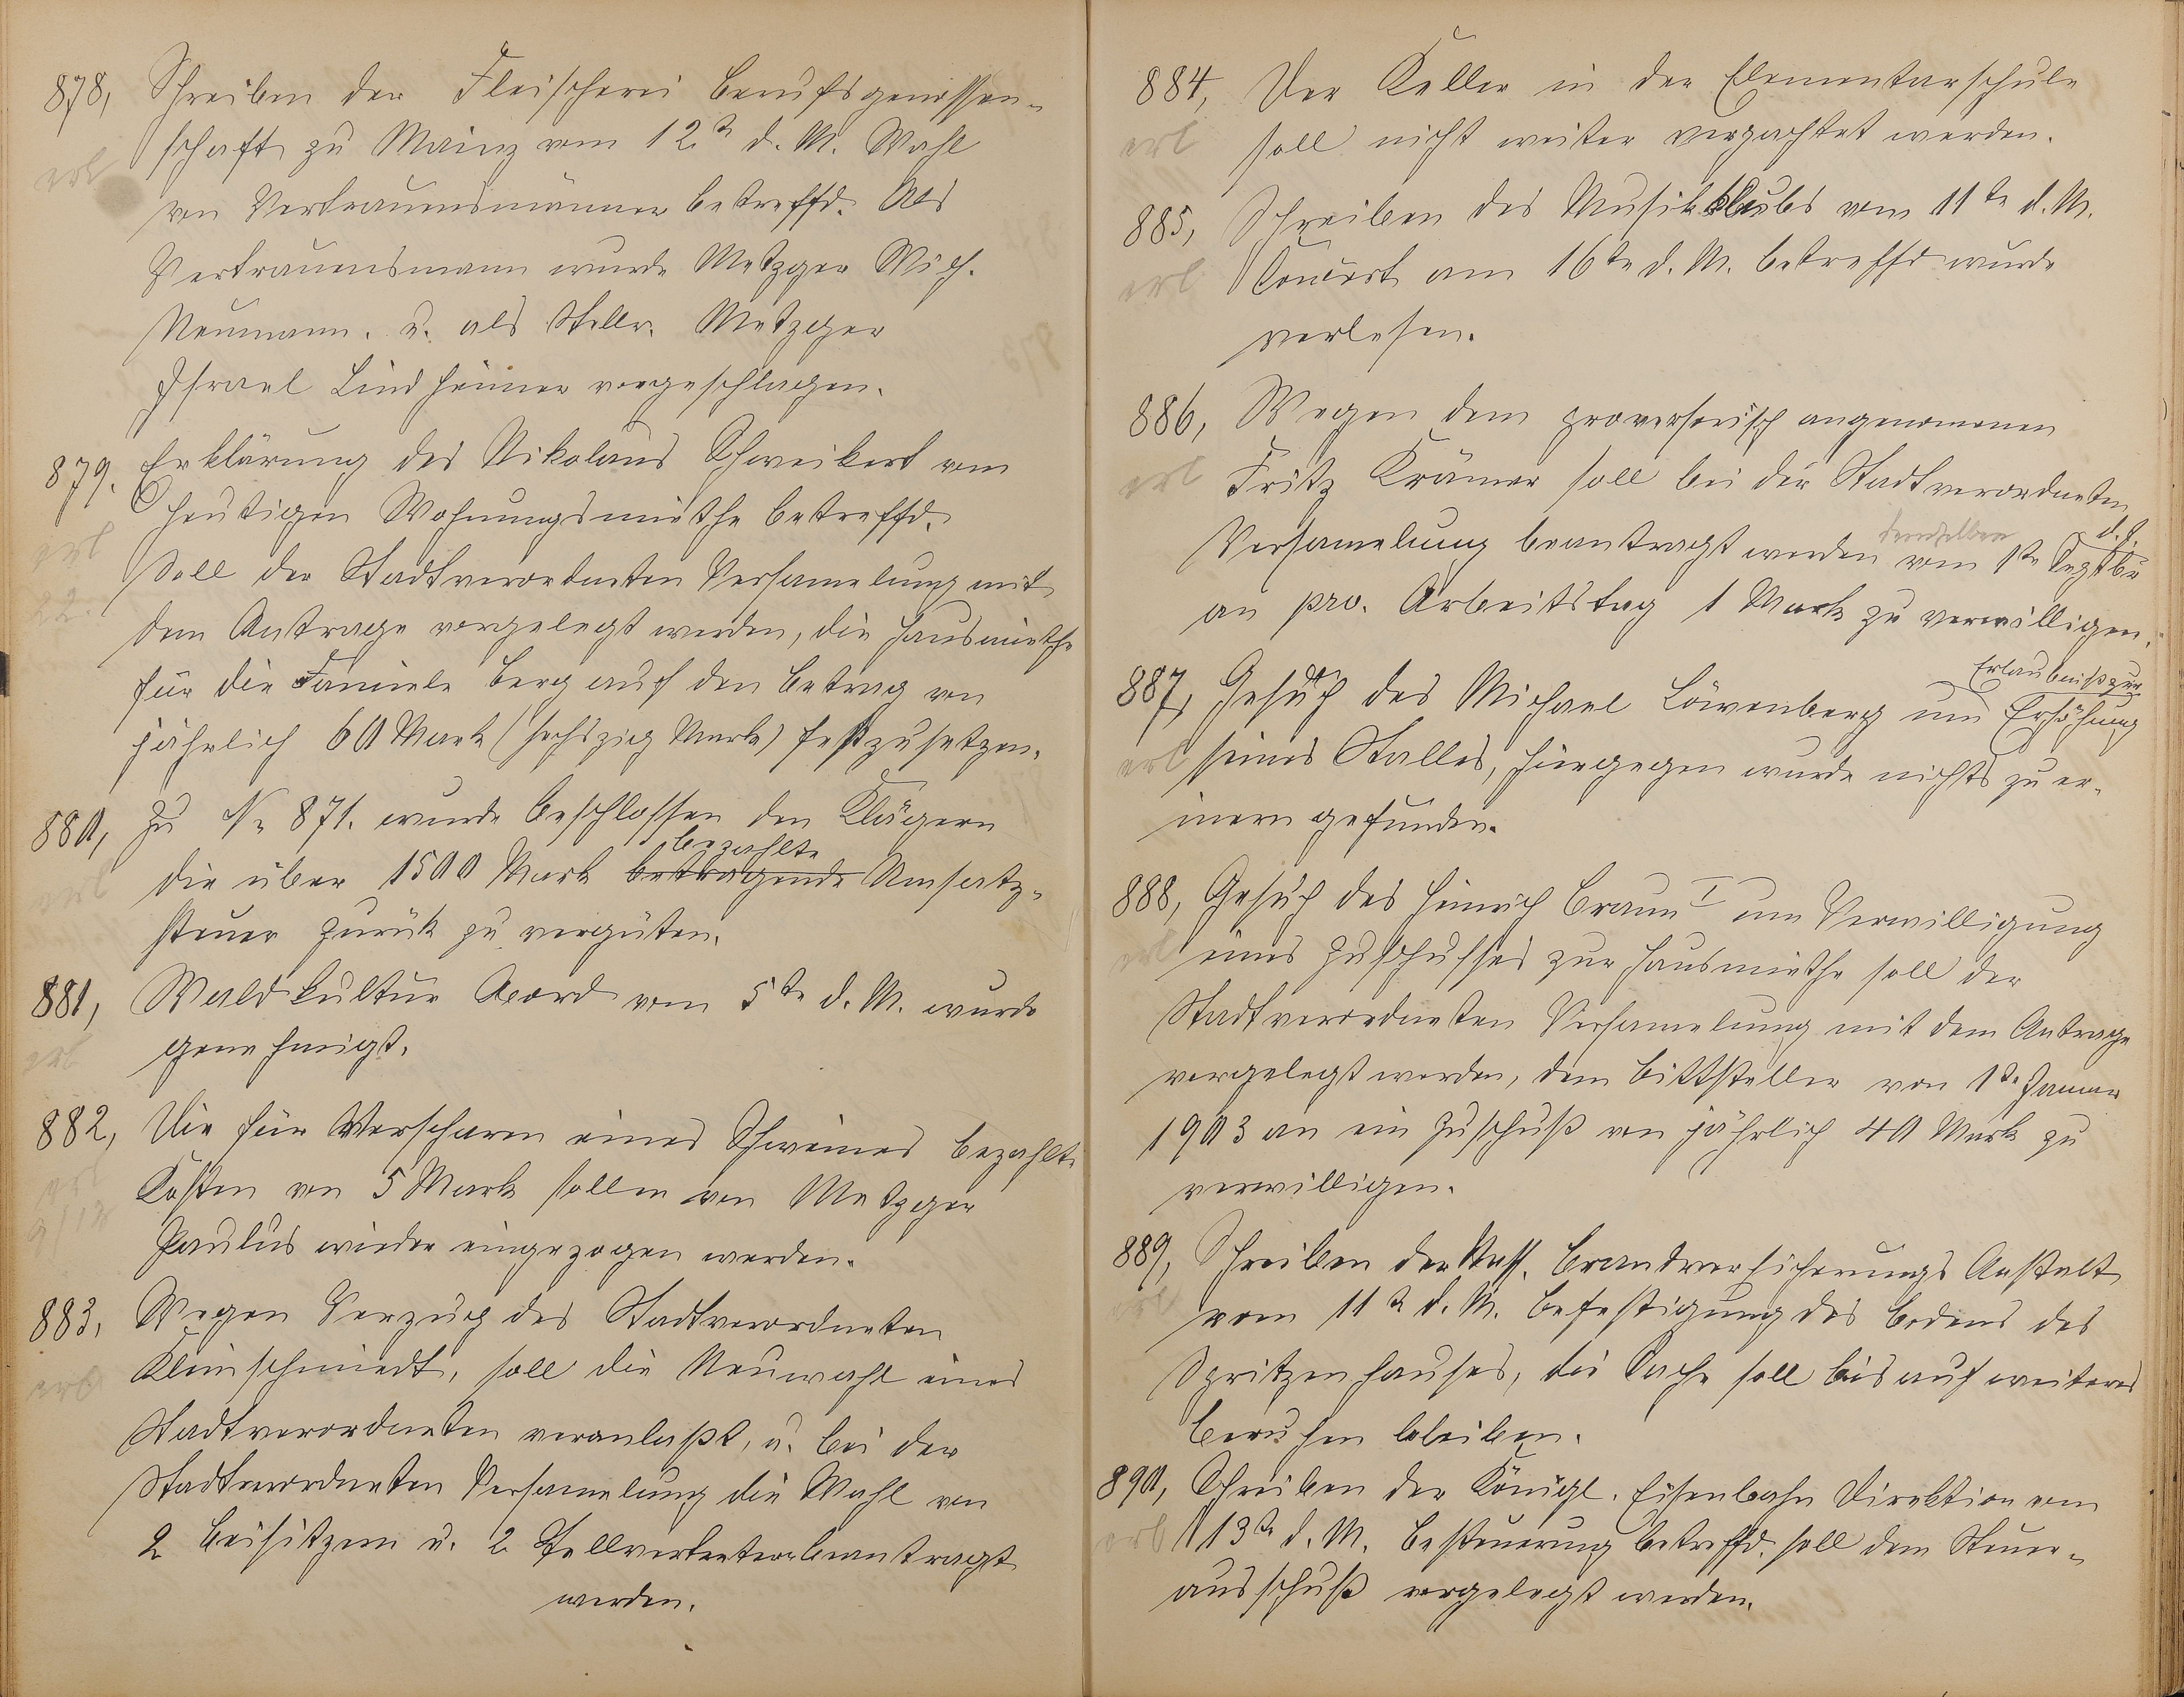 878, Schreiben der Fleischerei Berufsgenossen-
schaft zu Mainz vom 12te d. M. Wahl
erl
von Vertrauensmänner betreffd. Als
Vertrauensmann wurde Metzger Mich.
Neumann. u. als Stellv. Metzger
Israel Lindheimer vorgeschlagen.
879. Erklärung des Nikolaus Schweikert vom
heutigen Wohnungsmiethe betreffd.
erl
Soll der Stadtverordneten Versamelung mit
22.
dem Antrage vorgelegt werden, die Hausmiethe
für die Familie Berg auf den Betrag von
jährlich 60 Mark (sechszig Mark) festzusetzen.
880, Zu No 871. wurde beschlossen den Klägern
bezahlte
die über 1500 Mark betragende Umsatz-
erl
steuer zurük zu vergüten.
881, Waldkultur Acord vom 5te d. M. wurde
erl
genehmigt.
882, Die für Verscharen eines Schweines bezahlte
erl
Kosten von 5 Mark sollen von Metzger
Paulus wieder eingezogen werden.
883, Wegen Verzug des Stadtverordneten
erl
Kleinschmiedt, soll die Neuwahl eines
Stadtverordneten veranlaßt, u. bei der
Stadtverordneten Versamelung die Wahl von
2 Beisitzern u. 2 Stellvertreter beantragt
werden.
884, Der Keller in der Elementarschule
erl
soll nicht weiter verpachtet werden.
885, Schreiben des Musikklubs vom 11te d. M.
erl
Concert am 16te d. M. betreffd wurde
verlesen.
886, Wegen dem proversorisch angenomenen
erl
Fritz Krämer soll bei der Stadtverordneten
demselben d. J.
Versamelung beantragt werden vom 1te Septbr
an pro. Arbeitstag 1 Mark zu verwilligen.
Erlaubniß zur
887, Gesuch des Michael Löwenberg um Erhöhung
erl
seines Stalles, hiergegen wurde nichts zu er-
inern gefunden.
888, Gesuch des Heinrich Braun I um Verwilligung
erl
eines Zuschusses zur Hausmiethe soll der
Stadtverordneten Versamelung mit dem Antrage
vorgelegt werden, dem Bittsteller von 1te Januar
1903 an ein Zuschuß von jährlich 40 Mark zu
verwilligen.
889, Schreiben der Nass. Brandversicherungs Anstalt
erl
vom 11te d. M. Befestigung des Bodens des
Spritzenhauses, die Sache soll bis auf weiteres
beruhen bleiben.
890, Schreiben der Königl. Eisenbahn Direktion vom
erl
13te d. M. Besteuerung betreffd. soll dem Steuer-
ausschuß vorgelegt werden.